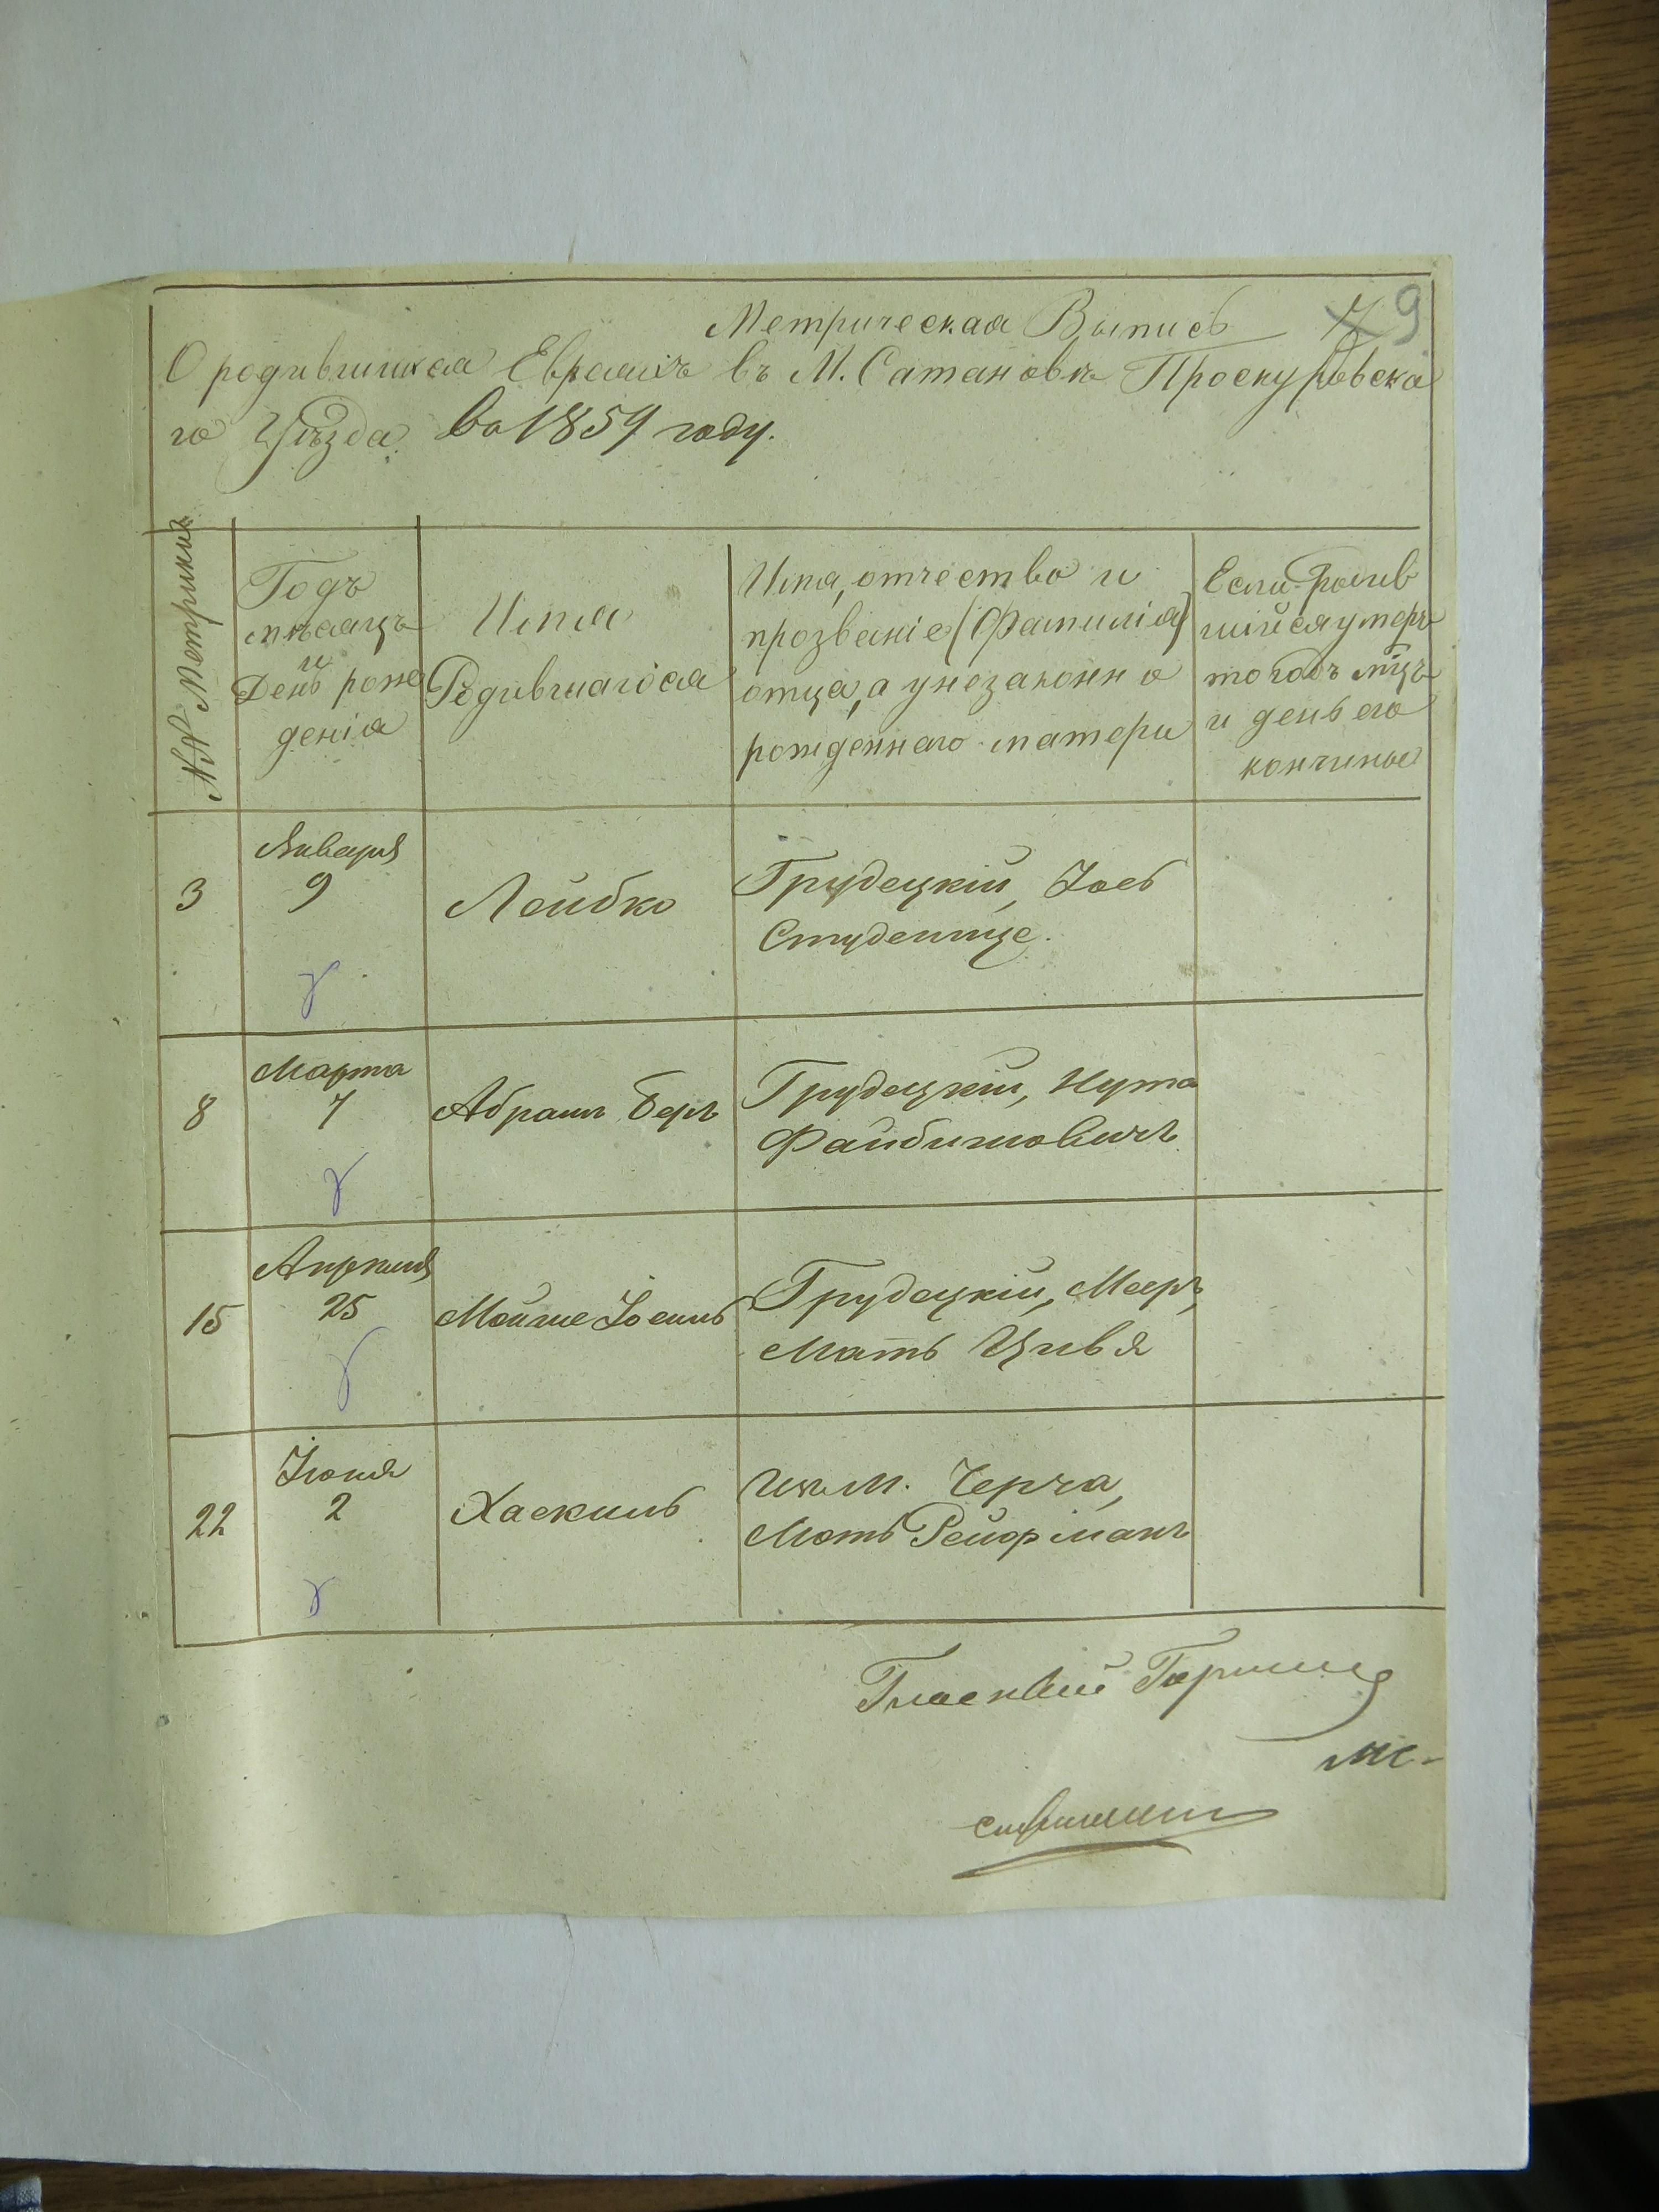 Метрическая Выпись
9
О родившихся Евреахъ въ М. Сатановѣ Проскуровска
го Уѣзда. Во 1859 году.
№№ Метрикиъ
Годъ
мѣсацъ
и
День рож
денія
Имя
Родившагося
Имя, отчество и
прозваніе (Фамилія)
отца, а у незаконно
рожденнаго матери
Если родив
шійся умеръ
то годъ мцъ
и день его
кончины
3
Января
9
Лейбко
Грудецкій, Іось
Студенице.
8
Марта
7
Абрамъ Беръ
Грудецкій, Нута
Файбишовичъ
15
Апрѣля
25
Мойше Іосипъ
Грудецкій, Мееръ,
Мать Цивя
22
Іюня
2
Хаскиль
из М. Черча,
Мать Рейфманъ